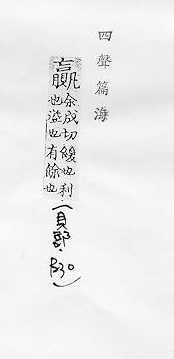 四聲篇海
贏余成切緩也利也溢也有餘也(貝部.B30)